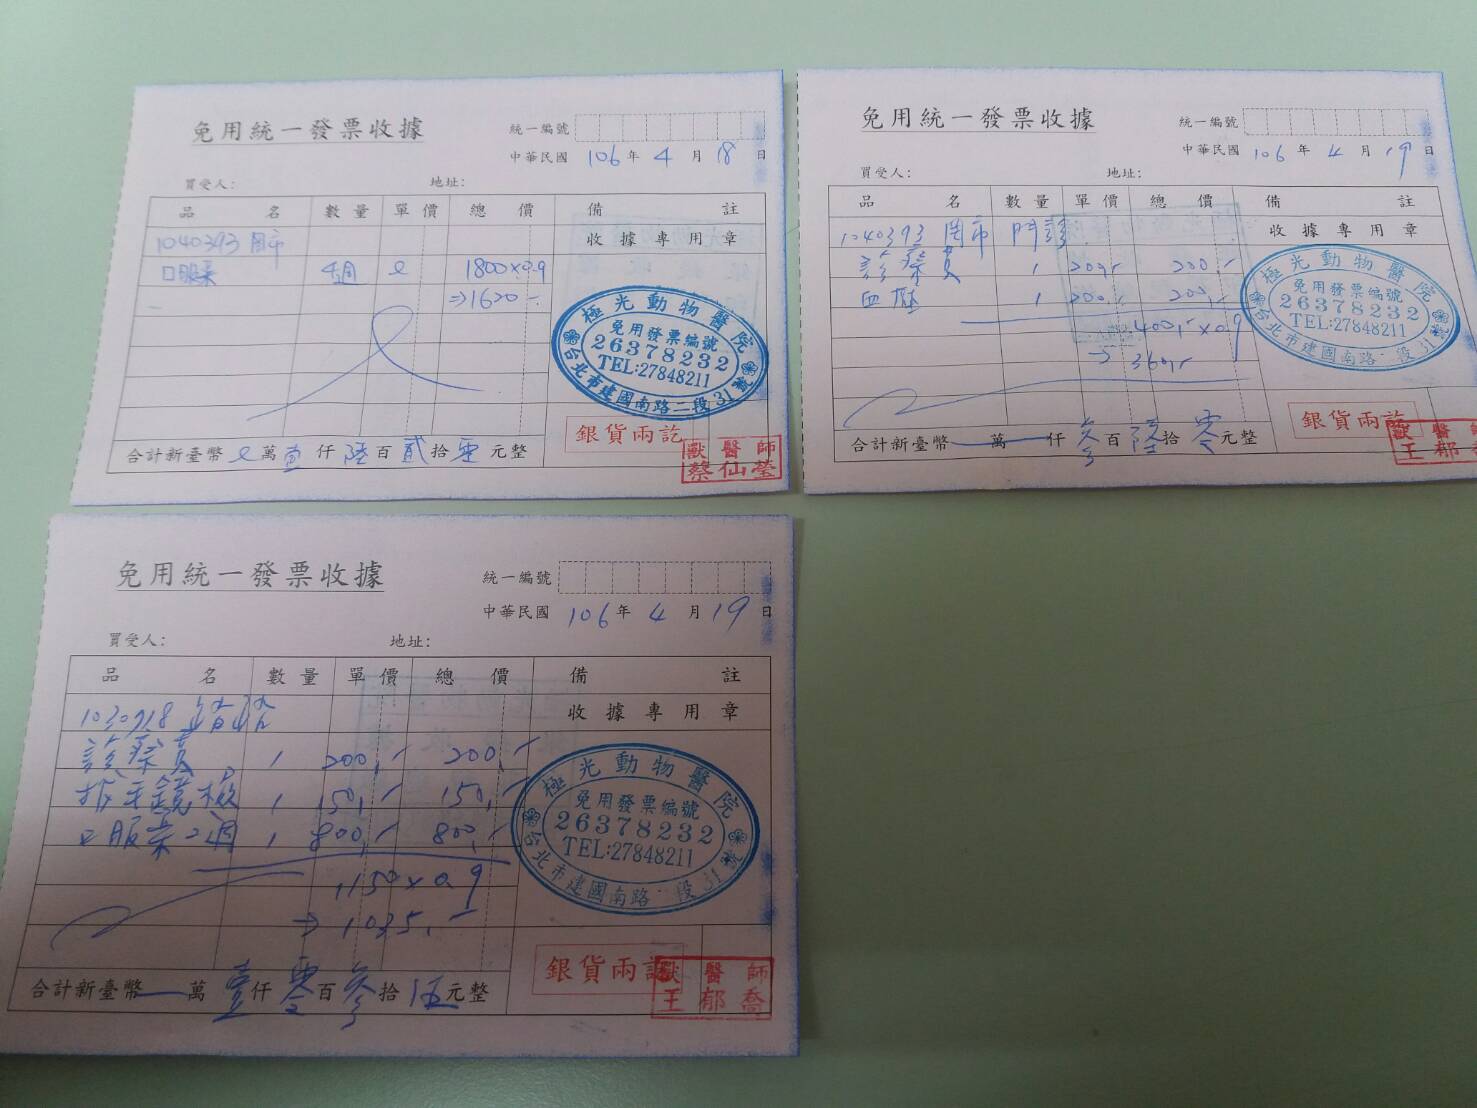 免用統一發票收據
統一編號
中華民國 106 年 4 月 18 日
買受人: 地址:
品 名 數 量 單 價 總 價 備 註
1040393 收 據 專 用 章
口服藥 4週 1800×0.9
⇒1620.-
極光動物醫院
免用發票編號
26378232
TEL:27848211
台北市建國南路二段31號
銀貨兩訖
獸醫師
蔡仙瑩
合計新臺幣 萬 壹 仟 陸 百 貳 拾 零 元整
免用統一發票收據
統一編號
中華民國 106 年 4 月 19 日
買受人: 地址:
品 名 數 量 單 價 總 價 備 註
1040393 門診 收 據 專 用 章
診療費 1 200.- 200.-
血壓 1 200.- 200.-
400.-×0.9
→ 360.-
極光動物醫院
免用發票編號
26378232
TEL:27848211
台北市建國南路二段31號
銀貨兩訖
獸醫師
王郁喬
合計新臺幣 一 萬 仟 參 百 陸 拾 零 元整
免用統一發票收據
統一編號
中華民國 106 年 4 月 19 日
買受人: 地址:
品 名 數 量 單 價 總 價 備 註
1030718 收 據 專 用 章
診療費 1 200.- 200.-
拔毛鏡檢 1 150.- 150.-
口服藥2週 1 800.- 800.-
1150×0.9
→ 1035.-
極光動物醫院
免用發票編號
26378232
TEL:27848211
台北市建國南路二段31號
銀貨兩訖
獸醫師
王郁喬
合計新臺幣 一 萬 壹 仟 零 百 參 拾 伍 元整